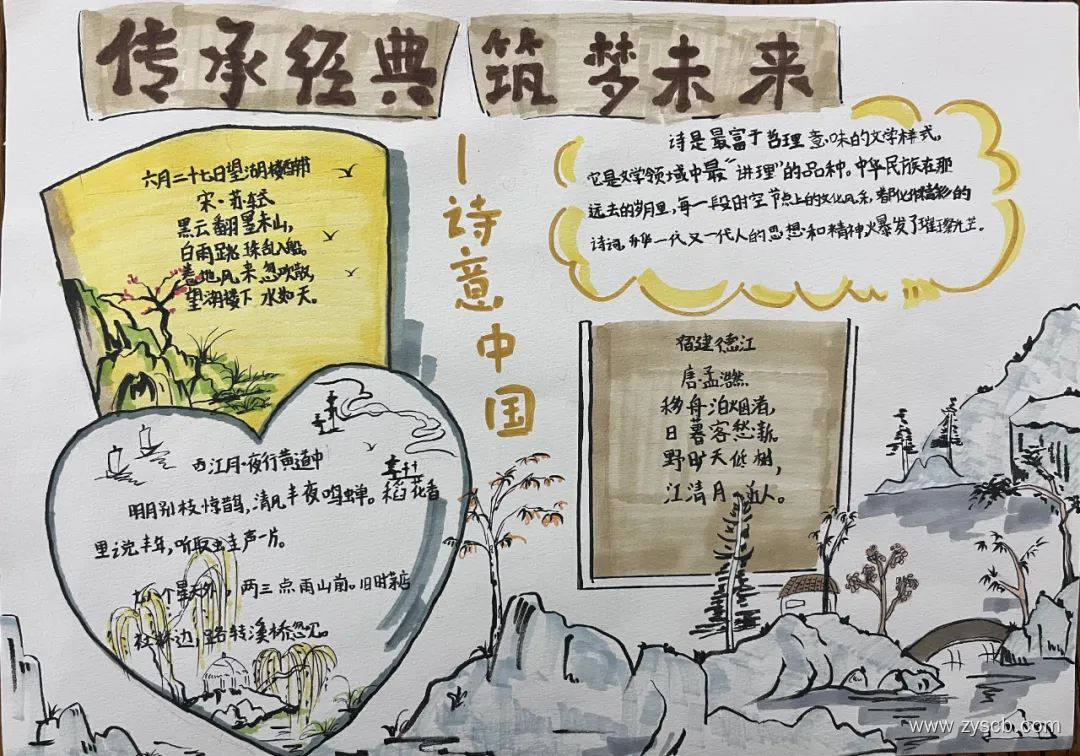 传承经典 筑梦未来
一诗意中国
六月二十七日望湖楼醉书
宋·苏轼
黑云翻墨未
山,
白雨跳珠乱入船。
卷地风来忽吹散,
望湖楼下水如天。
诗是最富于哲理意味的文学样式,
它是文学领域中最“讲理”的品种。中华民族在那
远去的岁月里,每一段时空节点上的文化风采,都化作精彩的
诗词,一代又一代人的思想和精神火爆发了璀璨光芒。
宿建德江
唐·孟浩然
移舟泊烟渚,
日暮客愁新。
野旷天低树,
江清月近人。
西江月·夜行黄道中
明月别枝惊鹊,清风半夜鸣蝉。稻花香
里说丰年,听取蛙声一片。
个星天外,两三点雨山前。旧时茅店
社林边,路转溪桥忽见。
www.zyscb.com